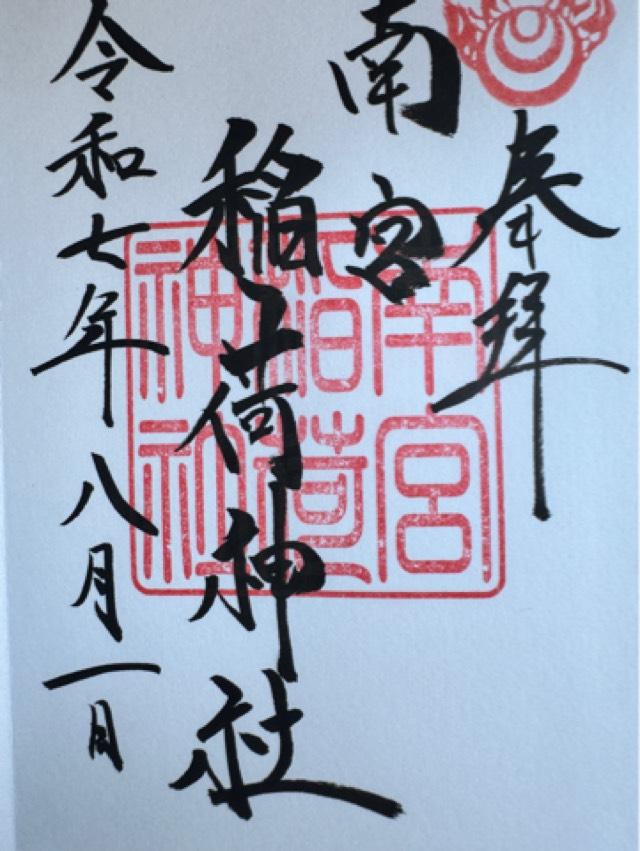 奉拝
南宮
稲荷神社
令和七年八月一日
南宮
稲荷
神社